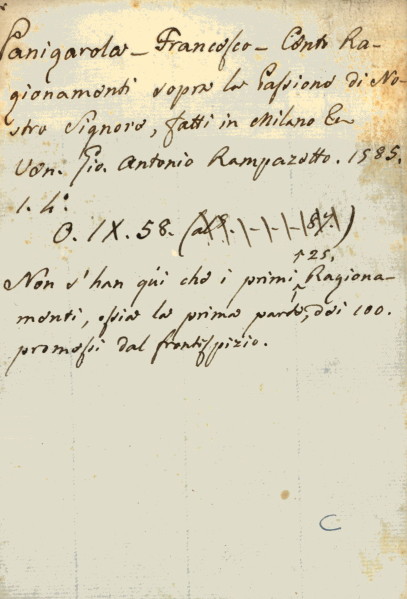 Panigarola - Francesco - Cento Ra-
gionamenti sopra la Passione di No-
stro Signore, fatti in Milano &c
Ven. Gio. Antonio Rampazetto. 1585.
1. 4°.
O. IX. 58.
25.
Non s'han qui che i primi Ragiona-
menti, ossia la prima parte, dei 100.
promessi dal frontispizio.
C